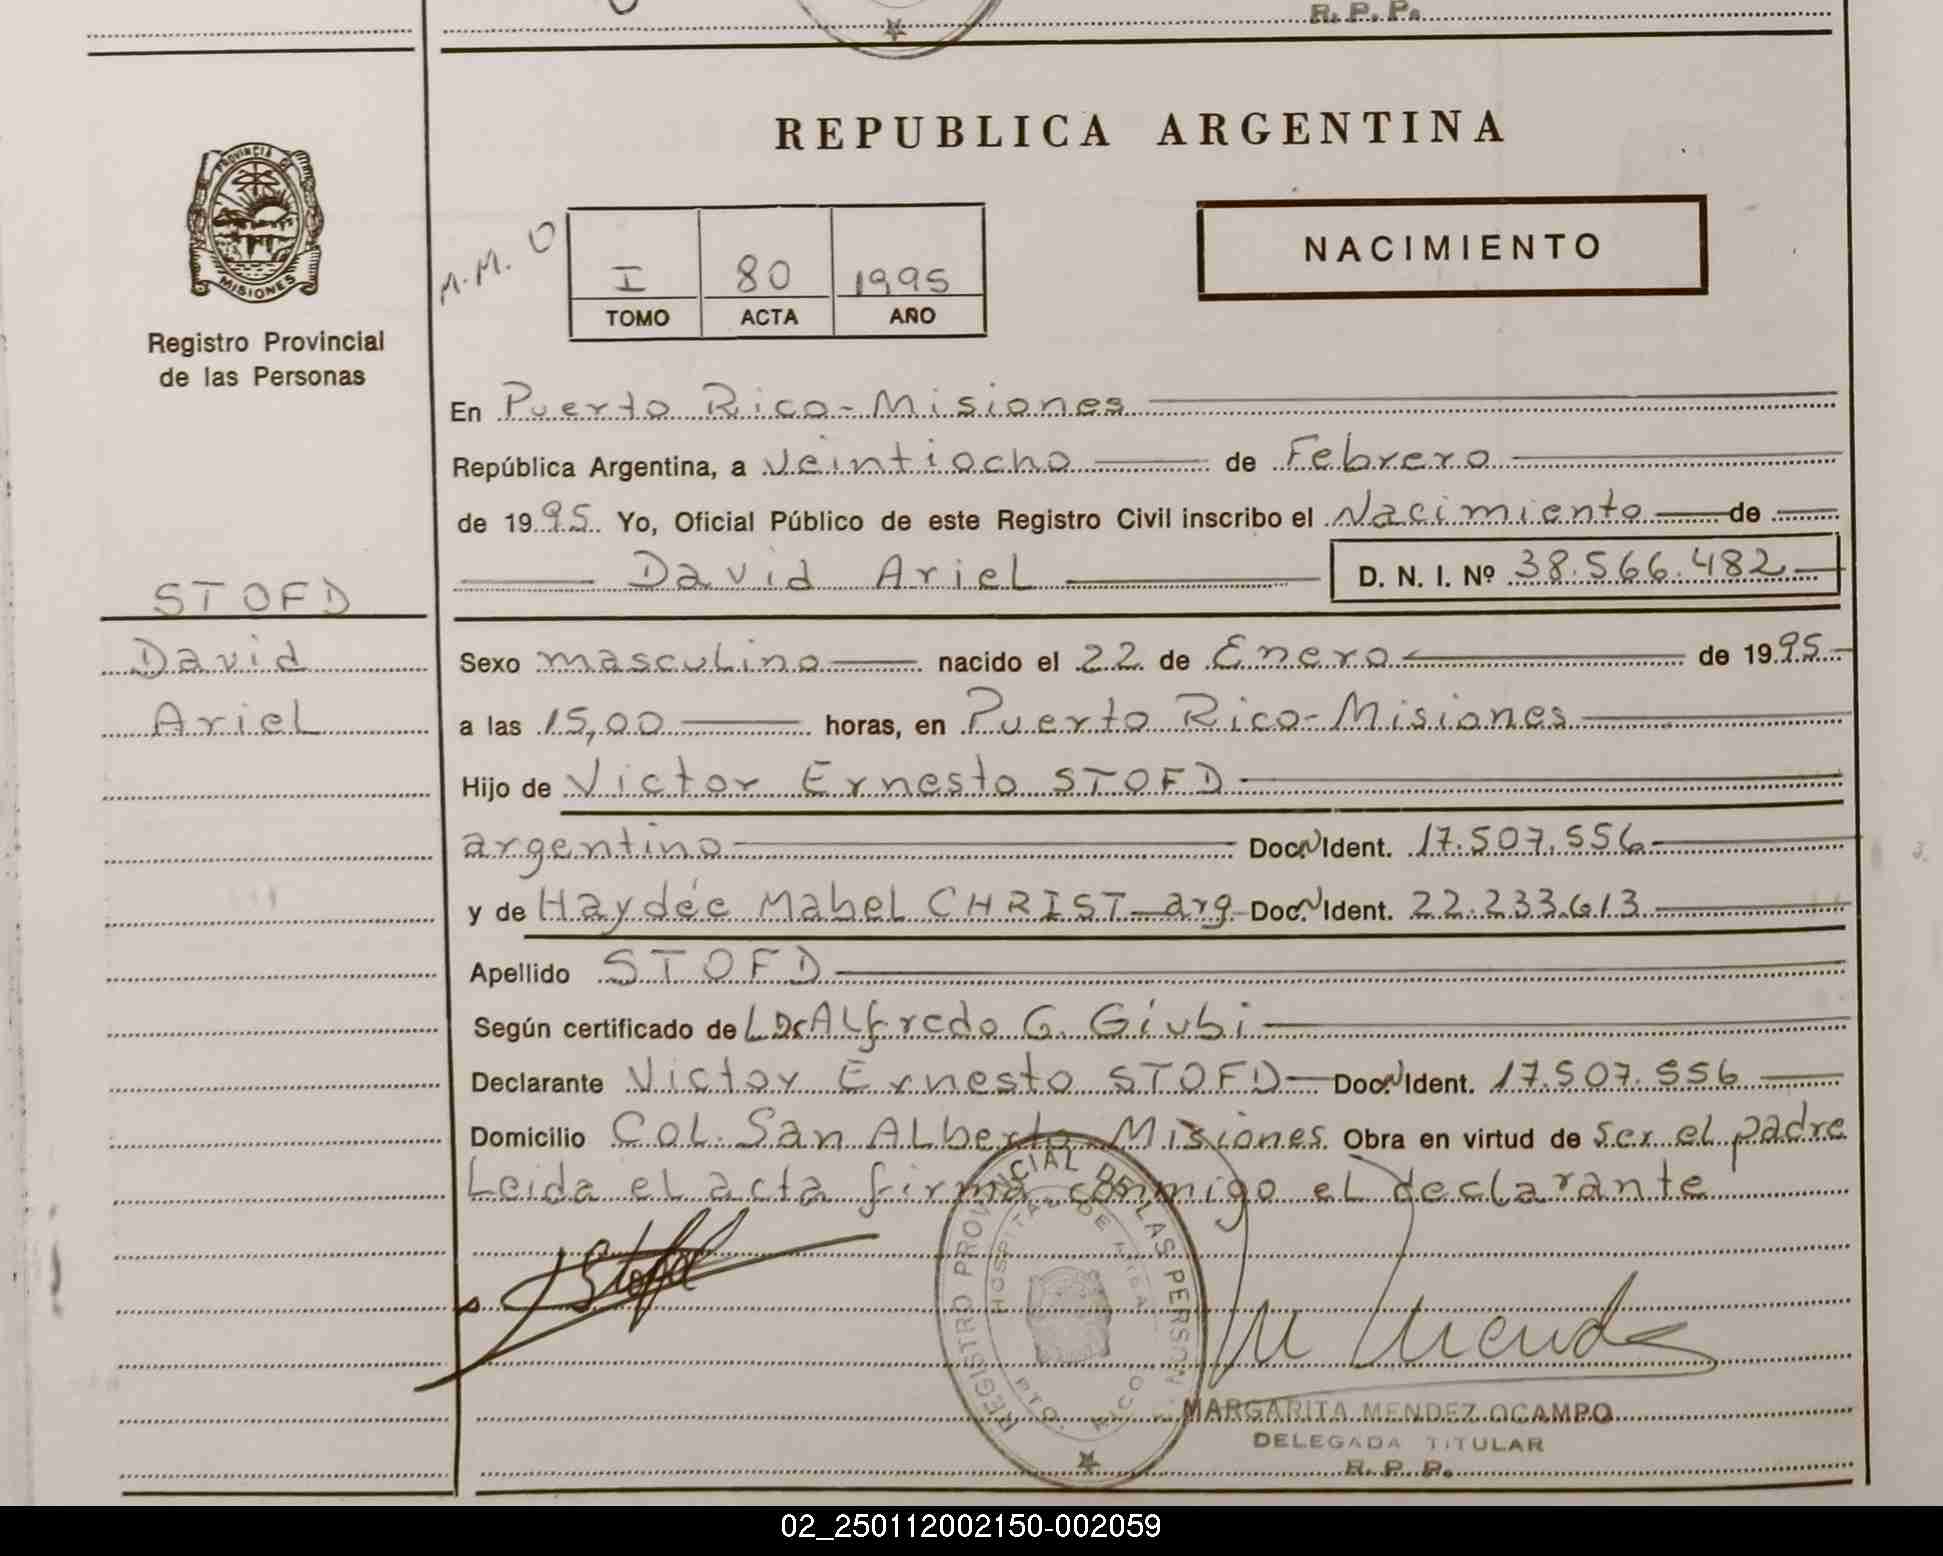 R. P. P.
REPUBLICA ARGENTINA
PROVINCIA D
MISIONES
Registro Provincial
de las Personas
M.M. O
I 80 1995
TOMO ACTA AÑO
NACIMIENTO
En Puerto Rico-Misiones
República Argentina, a veintiocho de Febrero
de 1995. Yo, Oficial Público de este Registro Civil inscribo el Nacimiento de
David Ariel D. N. I. Nº 38.566.482
STOFD
David
Ariel
Sexo masculino nacido el 22 de Enero de 1995
a las 15,00 horas, en Puerto Rico-Misiones
Hijo de Victor Ernesto STOFD
argentino Doc. N Ident. 17.507.556
y de Haydée Mabel CHRIST arg. Doc. N Ident. 22.233.613
Apellido STOFD
Según certificado de Alfredo G. Giubi
Declarante Victor Ernesto STOFD Doc. N Ident. 17.507.556
Domicilio Col. San Alberto Misiones Obra en virtud de ser el padre
Leida el acta firma conmigo el declarante
Stofd
REGISTRO PROVINCIAL DE LAS PERSONAS
HOSPITAL DE AREA
PTO. RICO
M Mendez
MARGARITA MENDEZ OCAMPO
DELEGADA TITULAR
R. P. P.
02_250112002150-002059